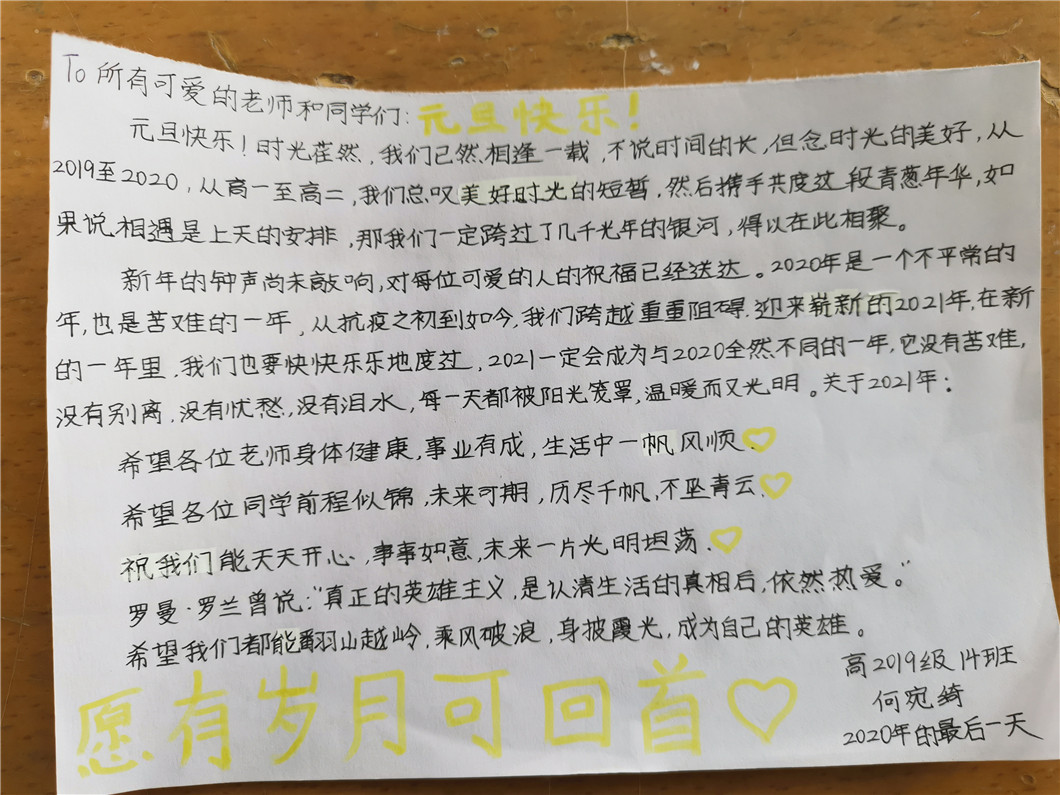 To 所有可爱的老师和同学们: 元旦快乐!
元旦快乐!时光荏然,我们已然相逢一载,不说时间的长,但念时光的美好,从
2019至2020,从高一至高二,我们总叹美好时光的短暂,然后携手共度这段青葱年华,如
果说相遇是上天的安排,那我们一定跨过了几千光年的银河,得以在此相聚。
新年的钟声尚未敲响,对每位可爱的人的祝福已经送达。2020年是一个不平常的
年,也是苦难的一年,从抗疫之初到如今,我们跨越重重阻碍.迎来崭新的2021年,在新
的一年里,我们也要快快乐乐地度过,2021一定会成为与2020全然不同的一年,它没有苦难,
没有别离,没有忧愁,没有泪水,每一天都被阳光笼罩,温暖而又光明。关于2021年:
希望各位老师身体健康,事业有成,生活中一帆风顺.♡
希望各位同学前程似锦,未来可期,历尽千帆,不坠青云.♡
祝我们能天天开心.事事如意,未来一片光明坦荡.♡
罗曼·罗兰曾说:"真正的英雄主义,是认清生活的真相后,依然热爱。"
希望我们都能翻山越岭,乘风破浪,身披霞光,成为自己的英雄。
高2019级14班
何宛绮
2020年的最后一天
愿有岁月可回首♡